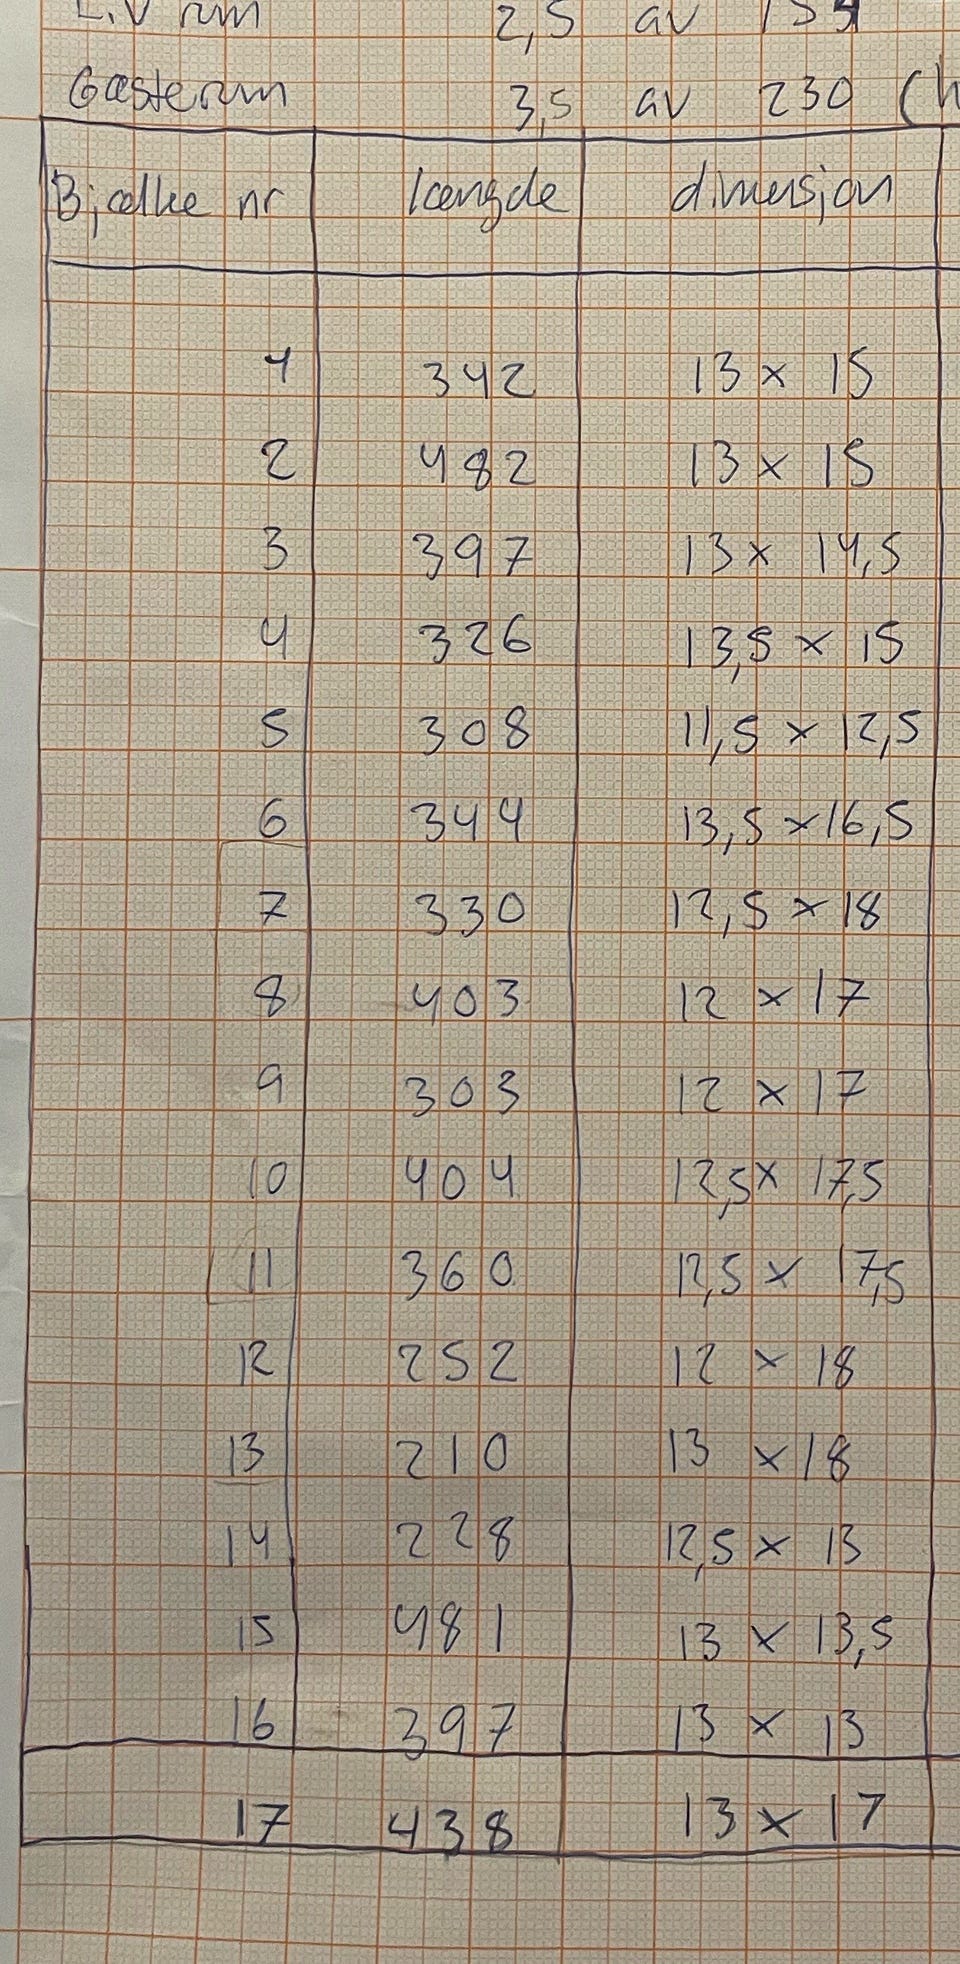 L.V rum 2,5 av 154
Gæsterum 3,5 av 230 (h
Bjælke nr længde dimension
1 342 13 x 15
2 482 13 x 15
3 397 13 x 14,5
4 326 13,5 x 15
5 308 11,5 x 12,5
6 344 13,5 x 16,5
7 330 12,5 x 18
8 403 12 x 17
9 303 12 x 17
10 404 12,5 x 17,5
11 360 12,5 x 17,5
12 252 12 x 18
13 210 13 x 18
14 228 12,5 x 13
15 481 13 x 13,5
16 397 13 x 13
17 438 13 x 17